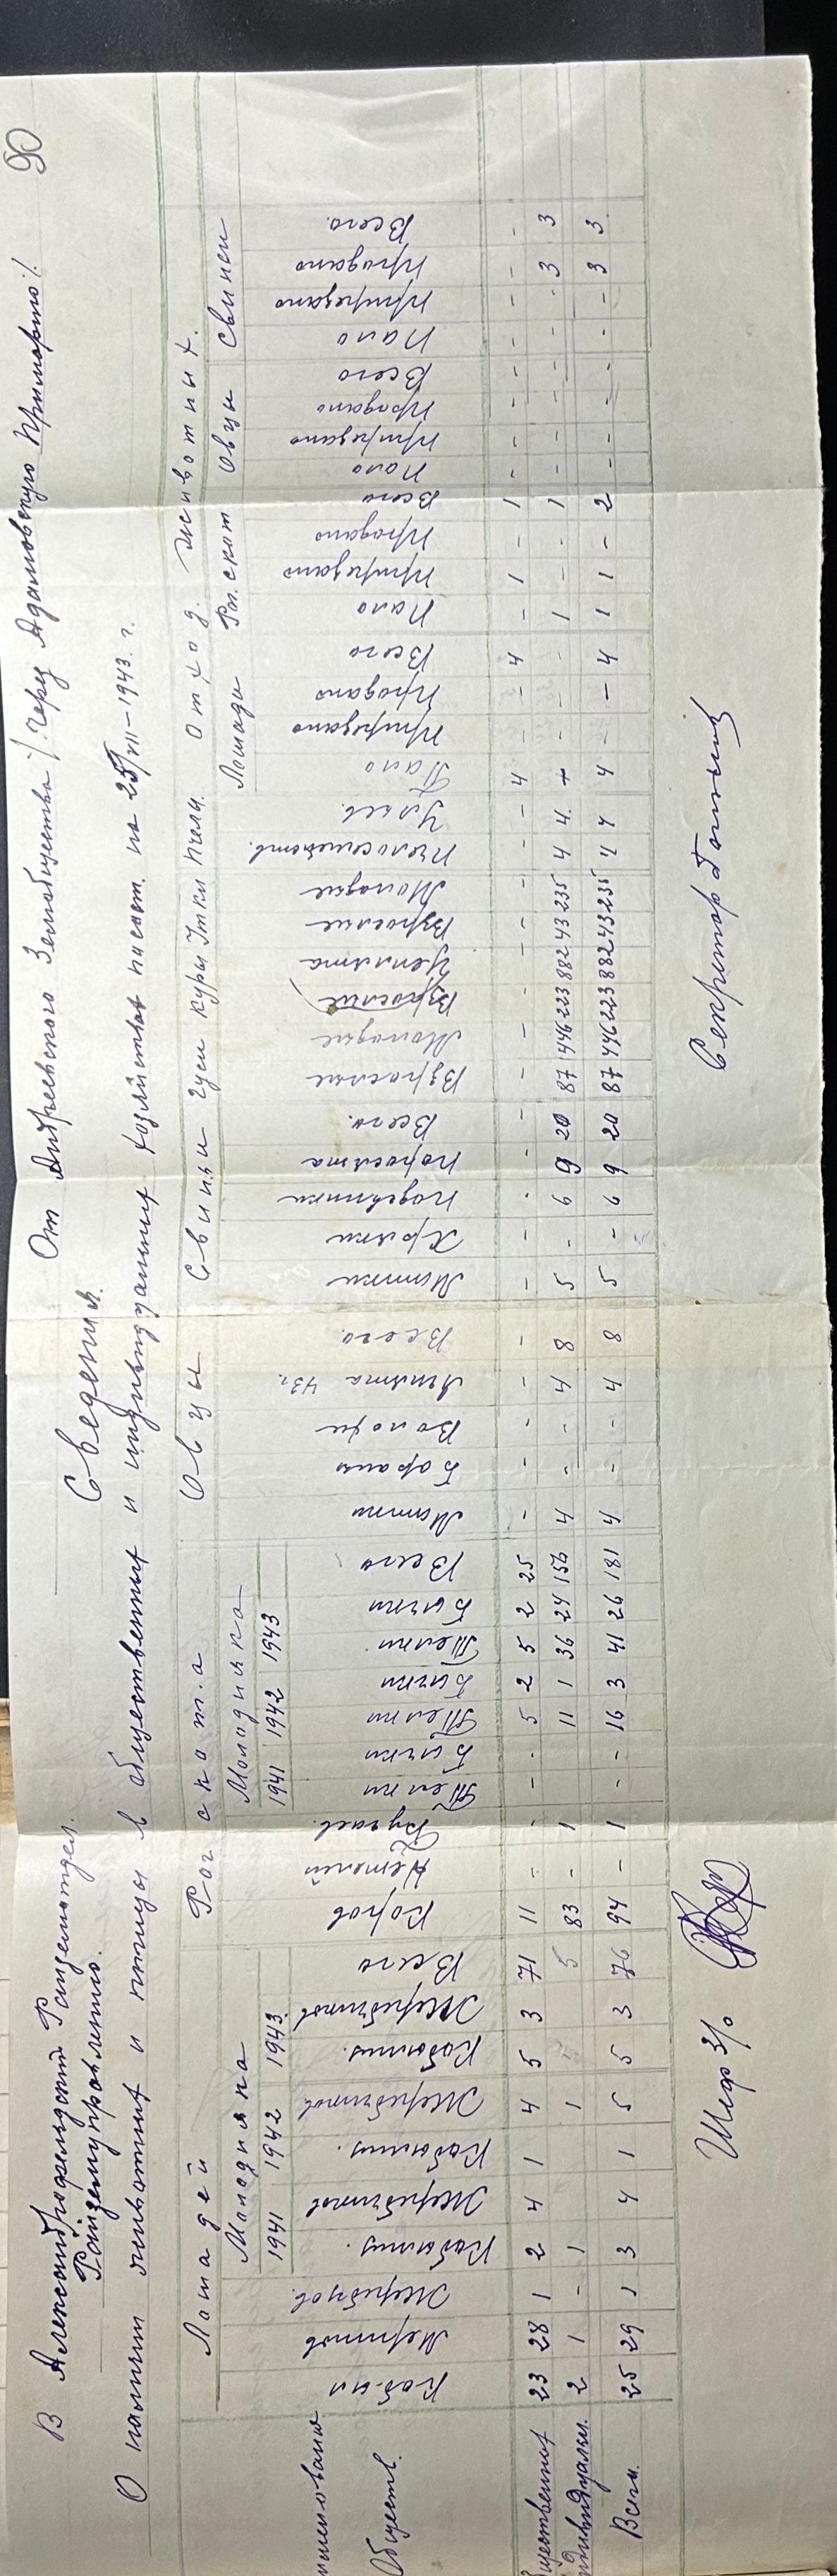 90
В Александрофельдский Райземотдел.
Райземуправлению.
От Андреевского Земобщества /. через Адамовскую Примарию /.
Сведения.
О наличии животных и птицы в общественных и индивидуальных хозяйствах насел. на 25/VII–1943 г.
Лошадей
Молодняка
1941 1942 1943
Рог скота
Молодняка
1941 1942 1943
Овцы
Свиньи
Гуси
Куры
Утки
Пчелы.
Отход животных.
Лошади
Рог. скот
Овцы
Свиньи
Обществ.
Кобыл
Меринов
Жеребцов.
Кобылиц.
Жеребчиков
Кобылиц.
Жеребчиков
Кобылиц.
Жеребчиков
Всего
Коров
Нетелей
Бугаев.
Телки
Бычки
Телки
Бычки
Телки
Бычки
Всего
Матки
Бараны
Валахи
Ягнята 43 г.
Всего
Матки
Хряки
Подсвинки
Поросята
Всего.
Взрослые
Молодые
Взрослые
Цыплята
Взрослые
Молодые
Пчелосемейств.
Ульев.
Пало
Прирезано
Продано
Всего
Пало
Прирезано
Продано
Всего
Пало
Прирезано
Продано
Всего
Пало
Прирезано
Продано
Всего.
бщественных 23 28 1 2 4 1 4 5 3 71 11 - - - - 5 2 5 2 25 - - - - - - - - - - - - - - - - - - 4 - - 4 - 1 - 1 - - - - - - - -
дивидуальн. 2 1 - 1 1 5 83 - 1 - - 11 1 36 24 156 4 - - 4 8 5 - 6 9 20 87 446 223 882 43 235 4 4. - - - - 1 - - 1 - - - - - - 3 3
Всего. 25 29 1 3 4 1 5 5 3 76 94 - 1 - - 16 3 41 26 181 4 - - 4 8 5 - 6 9 20 87 446 223 882 43 235 4 4 4 - - 4 1 1 - 2 - - - - - - 3 3
Шеф З/О
Секретар